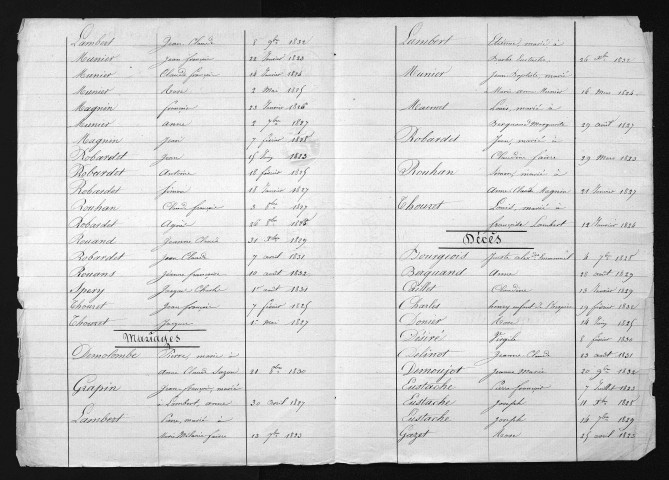 Lambert Jean Claude 8 9bre 1822
Munier Jean françois 22 février 1823
Munier Claude françois 14 février 1824
Munier Rose 2 Mai 1825
Magnin françois 22 février 1826
Munier Anne 2 7bre 1827
Magnin Jean 7 février 1828
Robardet Jean 15 1823
Robardet Antoine 18 février 1825
Robardet Simon 18 février 1827
Rouhan Claude françois 3 1827
Robardet Agnès 26 1828
Rouand Jeanne Claude 30 1829
Robardet Jean Claude 7 avril 1831
Rouans Jeanne françoise 10 août 1832
Spery Jacques Charles 1er août 1831
Thouret Jean françois 7 février 1825
Thouret Jacques 1er mai 1827
Mariages
Demolombe Pierre, marié à
Anne Claude 21 1830
Grapin Jean françois, marié
à Lambert, anne 30 avril 1827
Lambert Pierre, marié à
Mélanie faivre 13 1823
Lambert Etienne, marié à
Eustache 26 1832
Munier Jean Baptiste, marié
à Marie anne Munier 16 Mai 1824
Louis, marié à
Bergnand Marguerite 29 août 1827
Robardet Jean, marié à
Claudine faivre 29 Mars 1823
Rouhan Simon, marié à
Anne Claude Magnin 21 février 1827
Thouret Louis, marié à
françoise Lambert 12 février 1824
Décès
Bourgeois 4 7bre 1828
Berguand Anne 28 août 1829
Caillet Claudine 13 février 1829
Charles henry enfant de l'hospice 29 février 1832
Donier René 14 1825
Désiré Virgile 8 février 1830
Jeanne Claude 23 août 1831
Demoujot Jeanne Marie 20 9bre 1832
Eustache Pierre françois 7 Juillet 1823
Eustache Joseph 11 1828
Eustache Joseph 14 7bre 1829
Gazet Rose 25 avril 1823